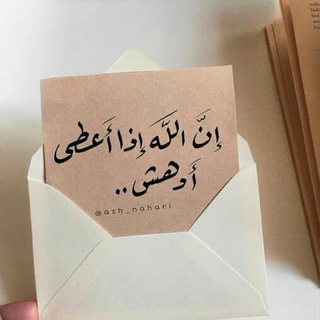 إنَّ اللَّهَ إذا أَعطى
أَدهش..
@azh_nahari